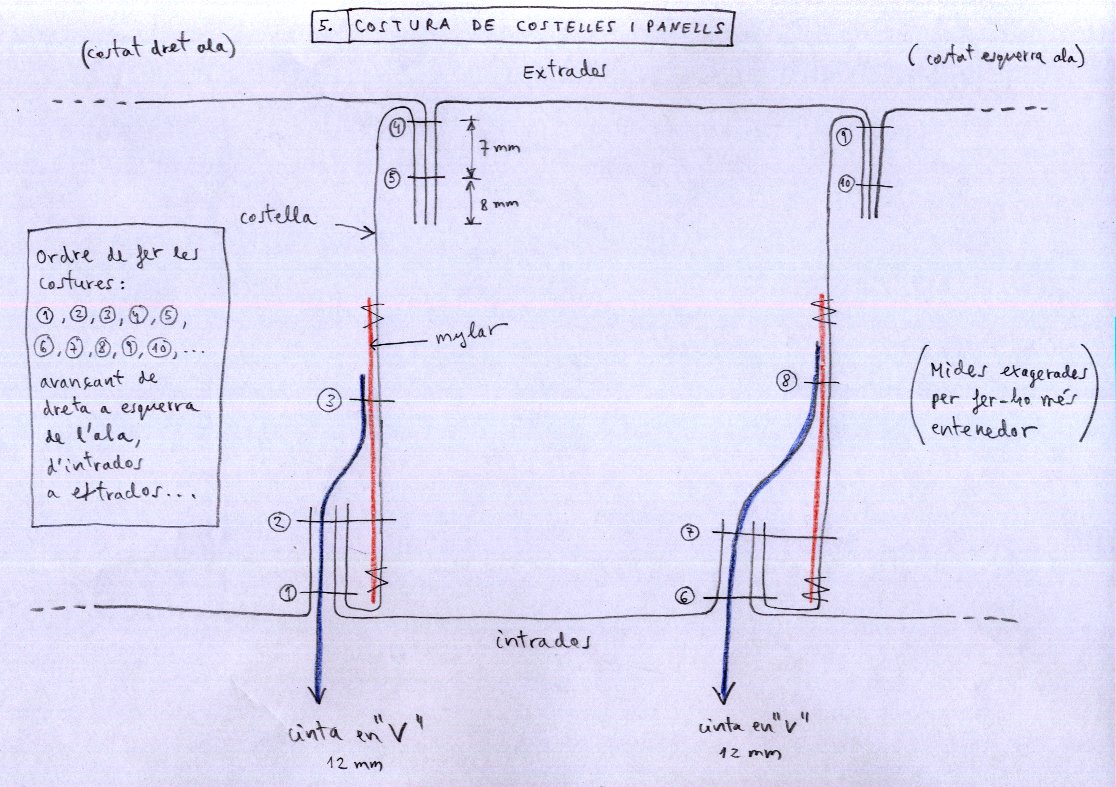 5. COSTURA DE COSTELLES I PANELLS
(costat dret ala)
(costat esquerra ala)
Extrados
4
7 mm
5
8 mm
9
10
costella
Ordre de fer les
costures:
1, 2, 3, 4, 5,
6, 7, 8, 9, 10, ...
avançant de
dreta a esquerra
de l'ala,
d'intrados
a extrados...
mylar
3
8
(Mides exagerades
per fer-ho més
entenedor)
2
7
1
6
intrados
cinta en "V"
12 mm
cinta en "V"
12 mm